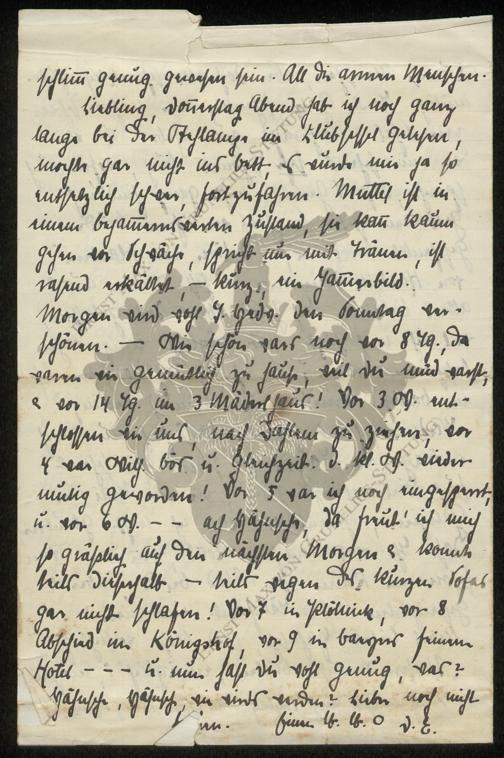 schlimm genug gewesen sein. All die armen Menschen.
Liebling, Donnerstag Abend hab ich noch ganz
lange bei der Stehlampe im Clubsessel gelesen,
mochte gar nicht ins Bett, es wurde mir ja so
entsetzlich schwer, fortzufahren. Muttel ist in
einem bejammernswerten Zustand, sie kann kaum
gehen vor Schwäche, spricht nur mit Tränen, ist
rasend erkältet, – kurz, ein Jammerbild.
Morgen wird wohl T. Hedw. den Sonntag ver-
schönen. – Wie schön wars noch vor 8 Tg., da
waren wir gemütlich zu Hause, weil du müd warst,
& vor 14 Tg. im 3 Mäderlhaus! Vor 3 W. ent-
schlossen wir uns, nach Dahlem zu ziehen, vor
4 war bös u. gleichzeit. d. kl. W. wieder
mutig geworden! Vor 5 war ich noch eingesperrt,
u. vor 6 W. – – ach Hähnsche, da freut' ich mich
so gräßlich auf den nächsten Morgen & konnte
teils dieserhalb – teils wegen des kurzen Sofas
gar nicht schlafen! Vor 7 in vor 8
Abschied im Königshof, vor 9 in feinem
Hotel – – – u. nun hast du wohl genug, was?
Hähnsche, Hähnsche, wie wirds werden? Lieber noch nicht
Einen O d. E.